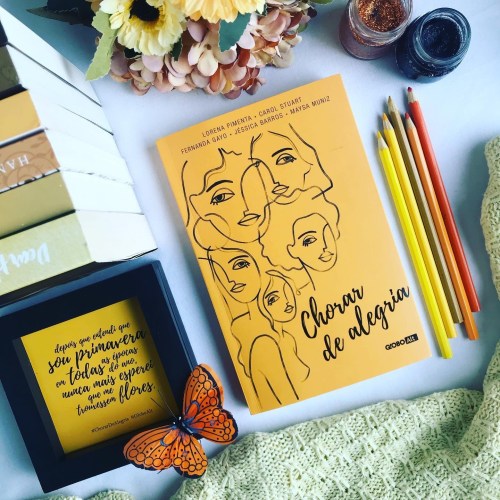 LORENA PIMENTA • CAROL STUART
FERNANDA GAYO • JÉSSICA BARROS • MAYSA MUNIZ
Chorar
de alegria
GLOBO ALT
depois que entendi que
sou primavera
em todas as épocas
do ano,
nunca mais esperei
que me
trouxessem flores.
HAN
Dear